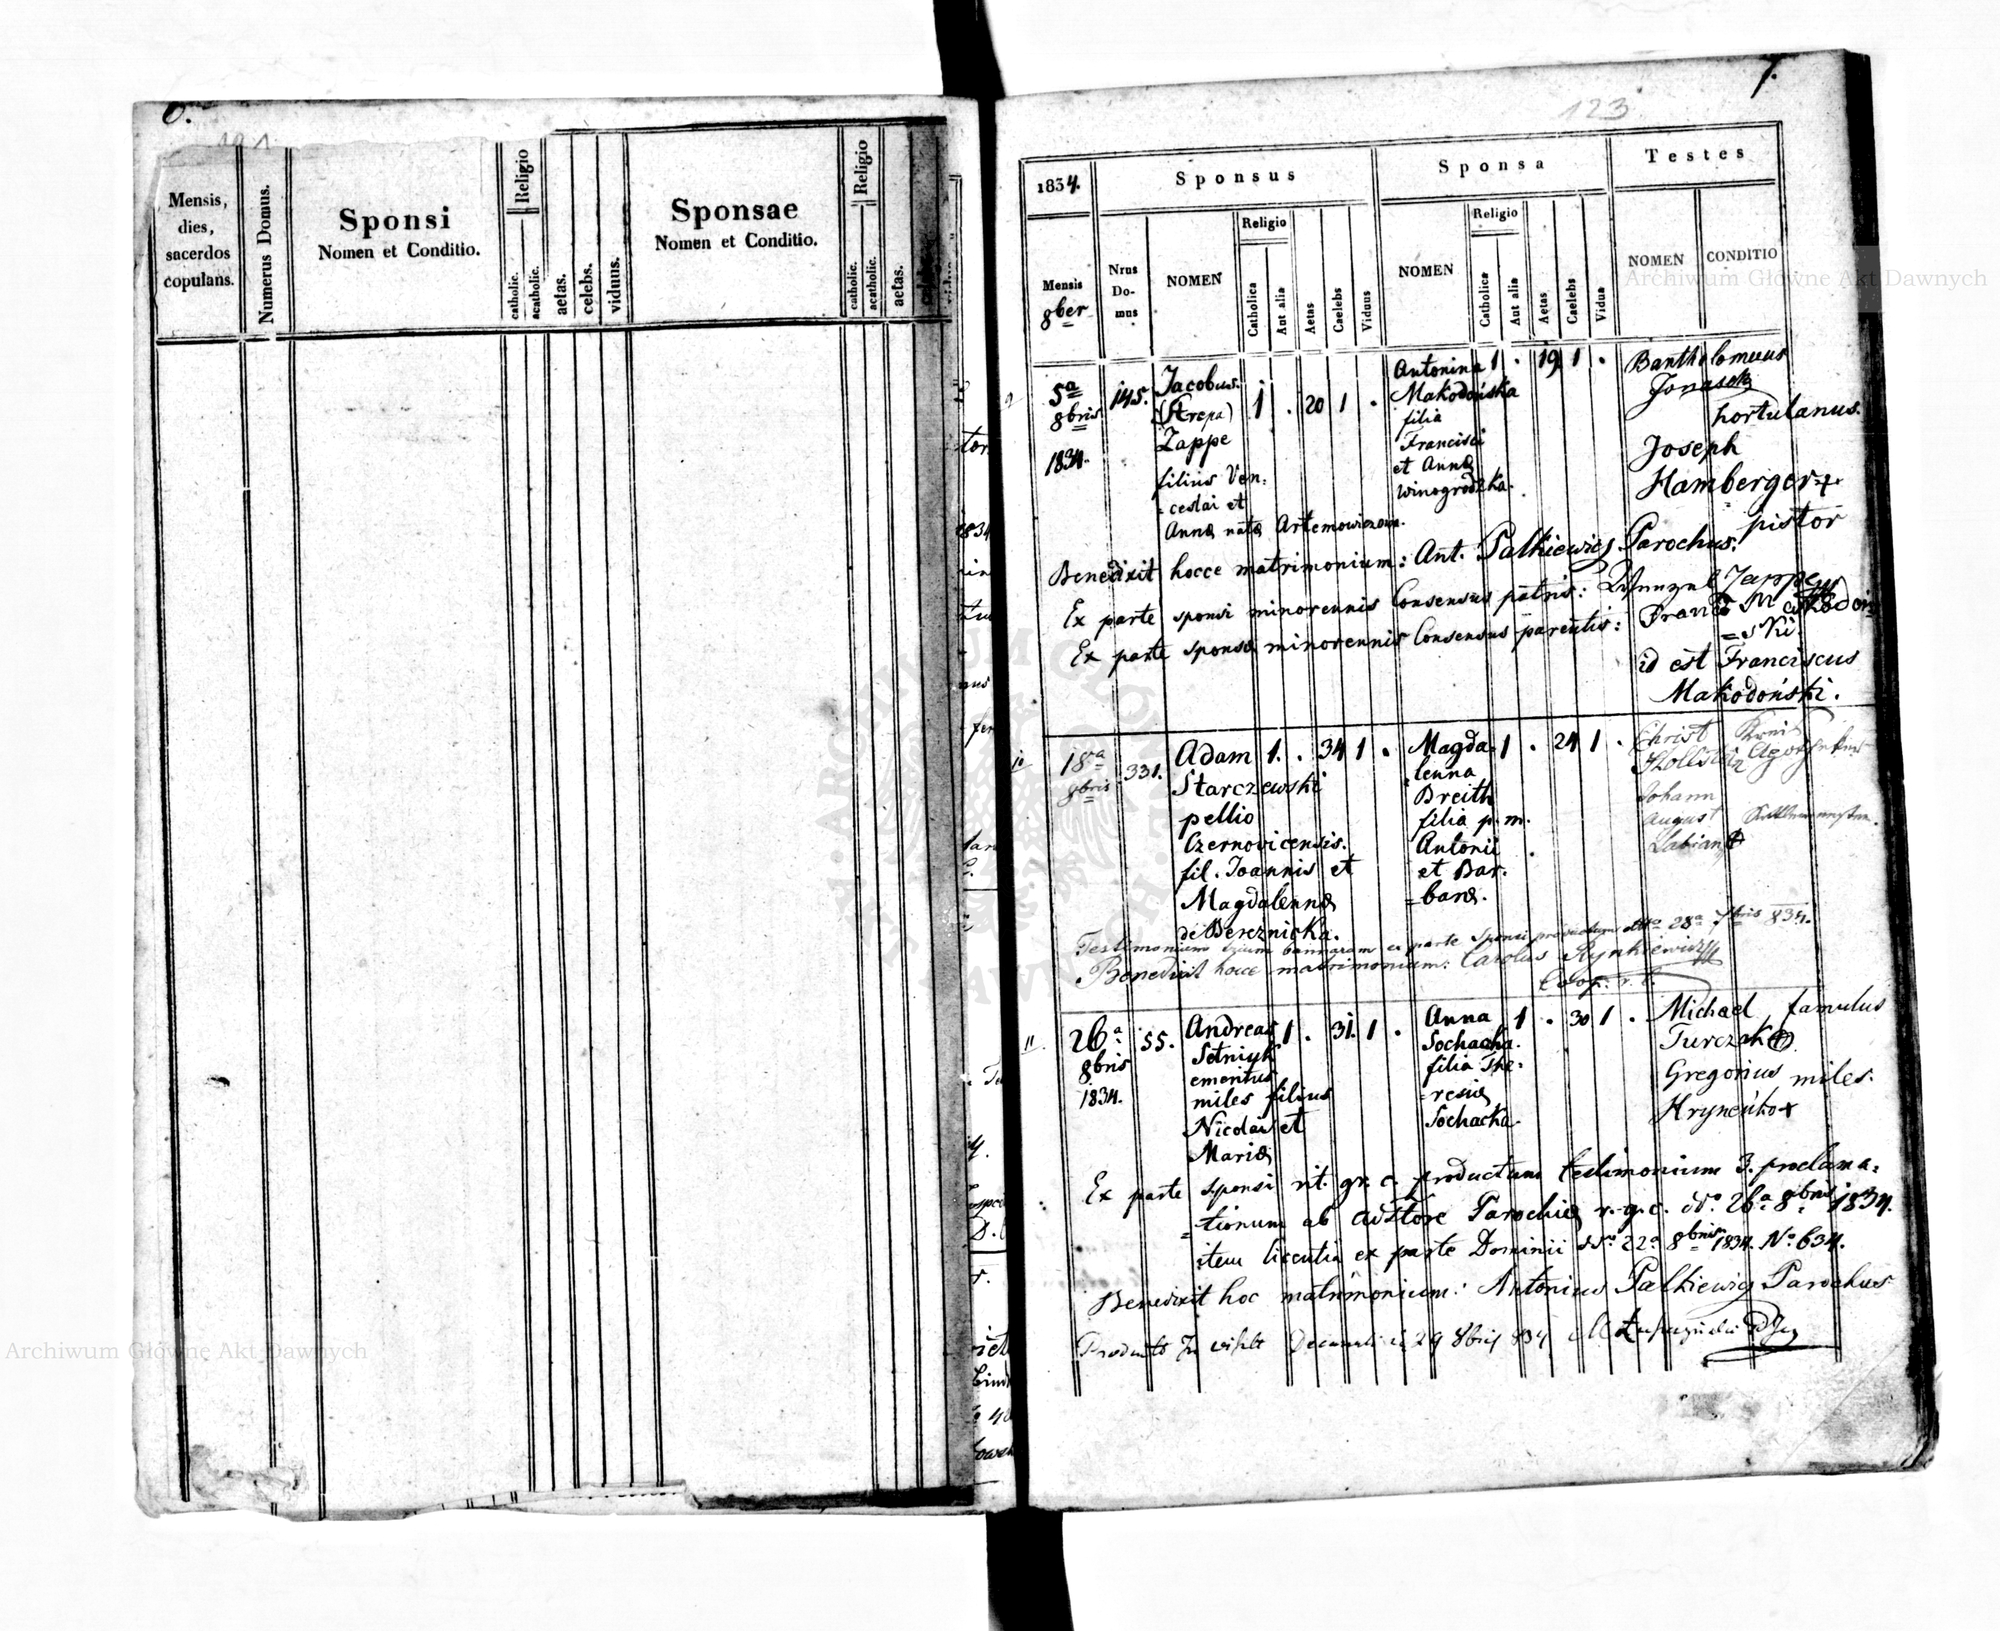 6.
121
Mensis,
dies,
sacerdos
copulans.
Numerus Domus.
Sponsi
Nomen et Conditio.
Religio
catholic.
acatholic.
aetas.
celebs.
viduus.
Sponsae
Nomen et Conditio.
Religio
catholic.
acatholic.
aetas.
7.
123
1834.
Sponsus
Sponsa
Testes
Mensis
8ber
Nrus
Do-
mus
NOMEN
Religio
Catholica
Aut alia
Aetas
Caelebs
Viduus
NOMEN
Religio
Catholica
Aut alia
Aetas
Caelebs
Vidua
NOMEN
CONDITIO
9
5a
8bris
1834.
145.
Jacobus
(Strepa)
Zappe
filius Ven=
=ceslai et
Annæ natæ Artemowiczowa.
1 . 20 1 .
Antonina
Makodońska
filia
Francisci
et Annæ
Winogrodzka.
1 . 19 1 .
Bartholomeus
Jonasek
hortulanus.
Joseph
Hamberger +
pistor
Benedixit hocce matrimonium: Ant. Palkiewicz Parochus.
Ex parte sponsi minorennis Consensus patris: Zappe
Ex parte sponsæ minorennis Consensus parentis: Makodoń
=ski
id est Franciscus
Makodoński.
10
18a
8bris
331.
Adam
Starczewski
pellio
Czernovicensis.
fil. Joannis et
Magdalennæ
de Bereznicka.
1 . 34 1 .
Magda=
lenna
Breith
filia p. m.
Antonii
et Bar=
=baræ.
1 . 24 1 .
Christ
Johann
August
Testimonium trium bannorum ex parte Sponsi productum ddto 28a 7bris 834.
Benedixit hocce matrimonium: Carolus Rynkiewicz
Coop. r. l.
11.
26a
8bris
1834.
55.
Andreas
Setniyk
emeritus
miles filius
Nicolai et
Mariæ
1 . 31. 1 .
Anna
Sochacka.
filia The=
=resiæ
Sochacka.
1 . 30 1 .
Michael famulus
Turczak
Gregorius miles.
Hryneńko +
Ex parte sponsi rit. gr. c. productum testimonium 3. proclama=
=tionum ab adstore Parochiæ r. g. c. dd. 26a 8bris 1834.
item licentia ex parte Dominii dd. 22a 8bris 1834. No 634.
Benedixit hoc matrimonium: Antonius Palkiewicz Parochus
Decanali 29 8bris 834
Archiwum Główne Akt Dawnych
Archiwum Główne Akt Dawnych
ARCHIWUM GŁÓWNE AKT DAWNYCH